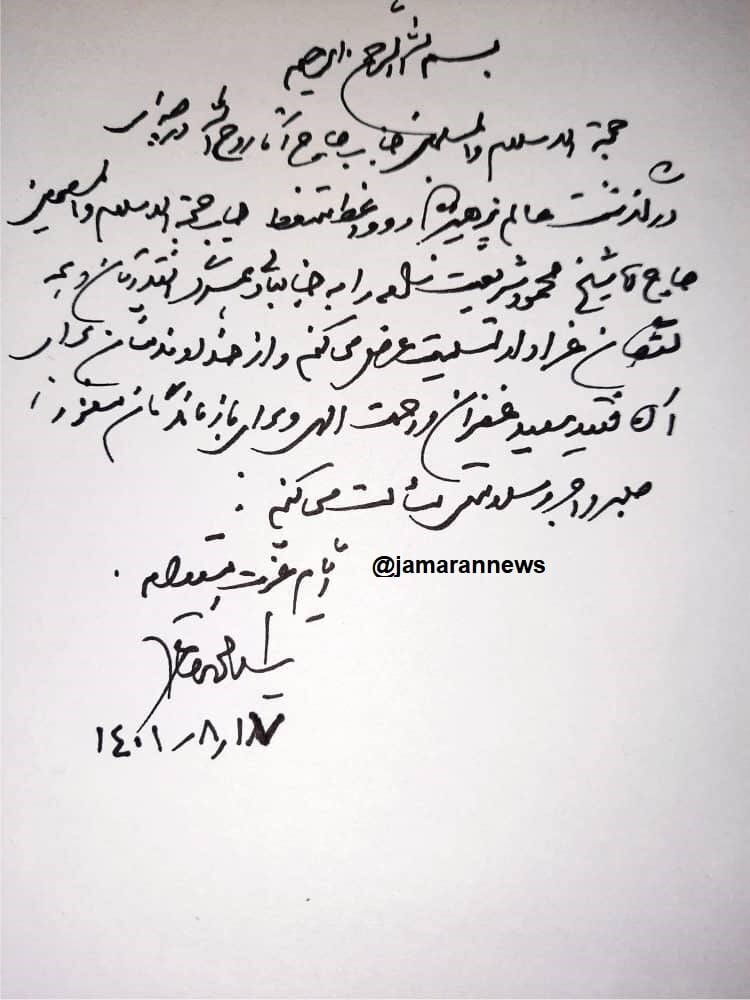 بسم الله الرحمن الرحیم
حجة الاسلام والمسلمین جناب حاج آقا روح الله
درگذشت عالم پرهیزگار و واعظ متعظ جناب حجة الاسلام والمسلمین
حاج شیخ محمود شریعت را به جنابعالی و همه
عزادار تسلیت عرض می‌کنم و از خداوند منان برای
آن فقید سعید غفران و رحمت الهی و برای بازماندگان معزز
صبر و اجر و سلامتی مسألت می‌کنم
ایام عزت مستدام
@jamarannews
سید محمد خاتمی
۱۴۰۱٫۸٫۱۷